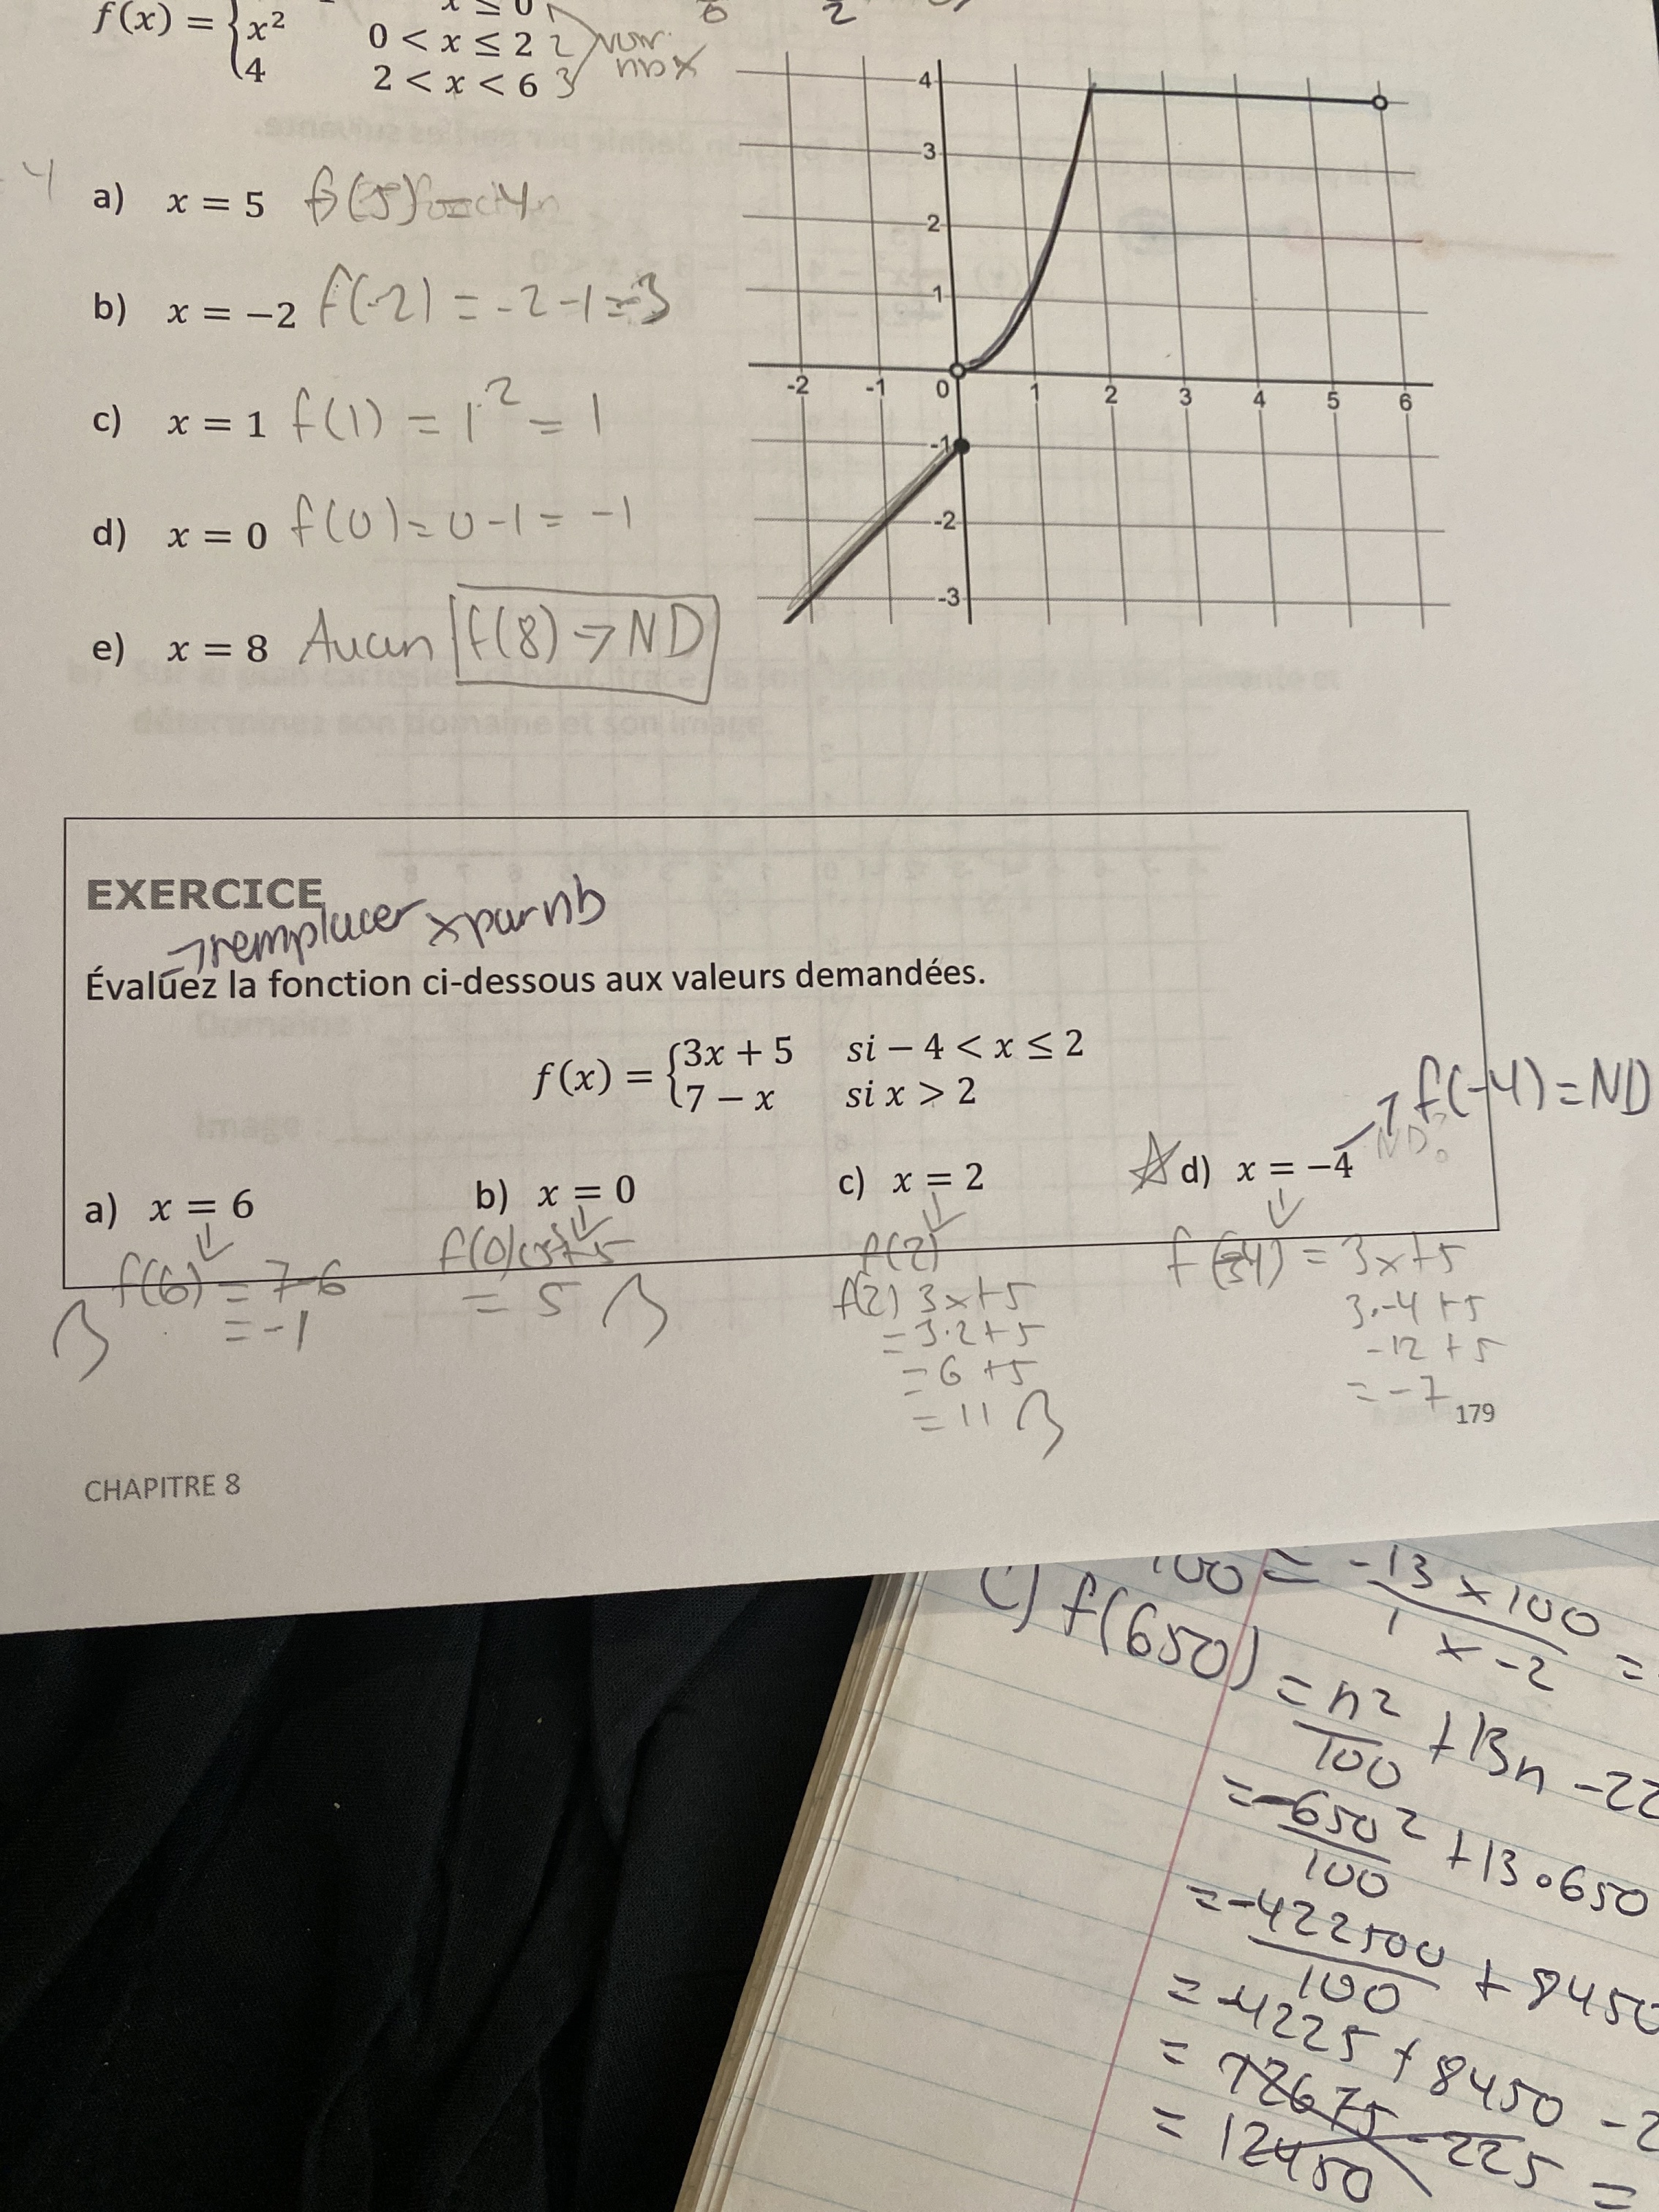 f(x) = { x ≤ 0
x² 0 < x ≤ 2 2
4 2 < x < 6 3
nb x
4
a) x = 5 f(5) = 4
b) x = −2 f(-2) = -2-1=-3
c) x = 1 f(1) = 1² = 1
d) x = 0 f(0) = 0-1 = -1
e) x = 8 Aucun f(8) → ND
4
3
2
1
-2 -1 0 1 2 3 4 5 6
-1
-2
-3
EXERCICE
→remplacer x par nb
Évaluez la fonction ci-dessous aux valeurs demandées.
f(x) = { 3x + 5 si − 4 < x ≤ 2
7 − x si x > 2
f(-4) = ND
ND?
a) x = 6 b) x = 0 c) x = 2 d) x = −4
f(6) = 7-6
= -1
f(0)
= 5
f(2)
f(2) 3x+5
= 3·2+5
= 6 +5
= 11
= 3x+5
3·-4 +5
-12 +5
= -7
179
CHAPITRE 8
100 = -13 x 100 =
1 x -2
c) f(650) = n² + 13n - 22
100
= -650² + 13•650
100
= -422500 + 8450
100
= -4225 + 8450 - 2
= 12675 - 225 =
= 12450